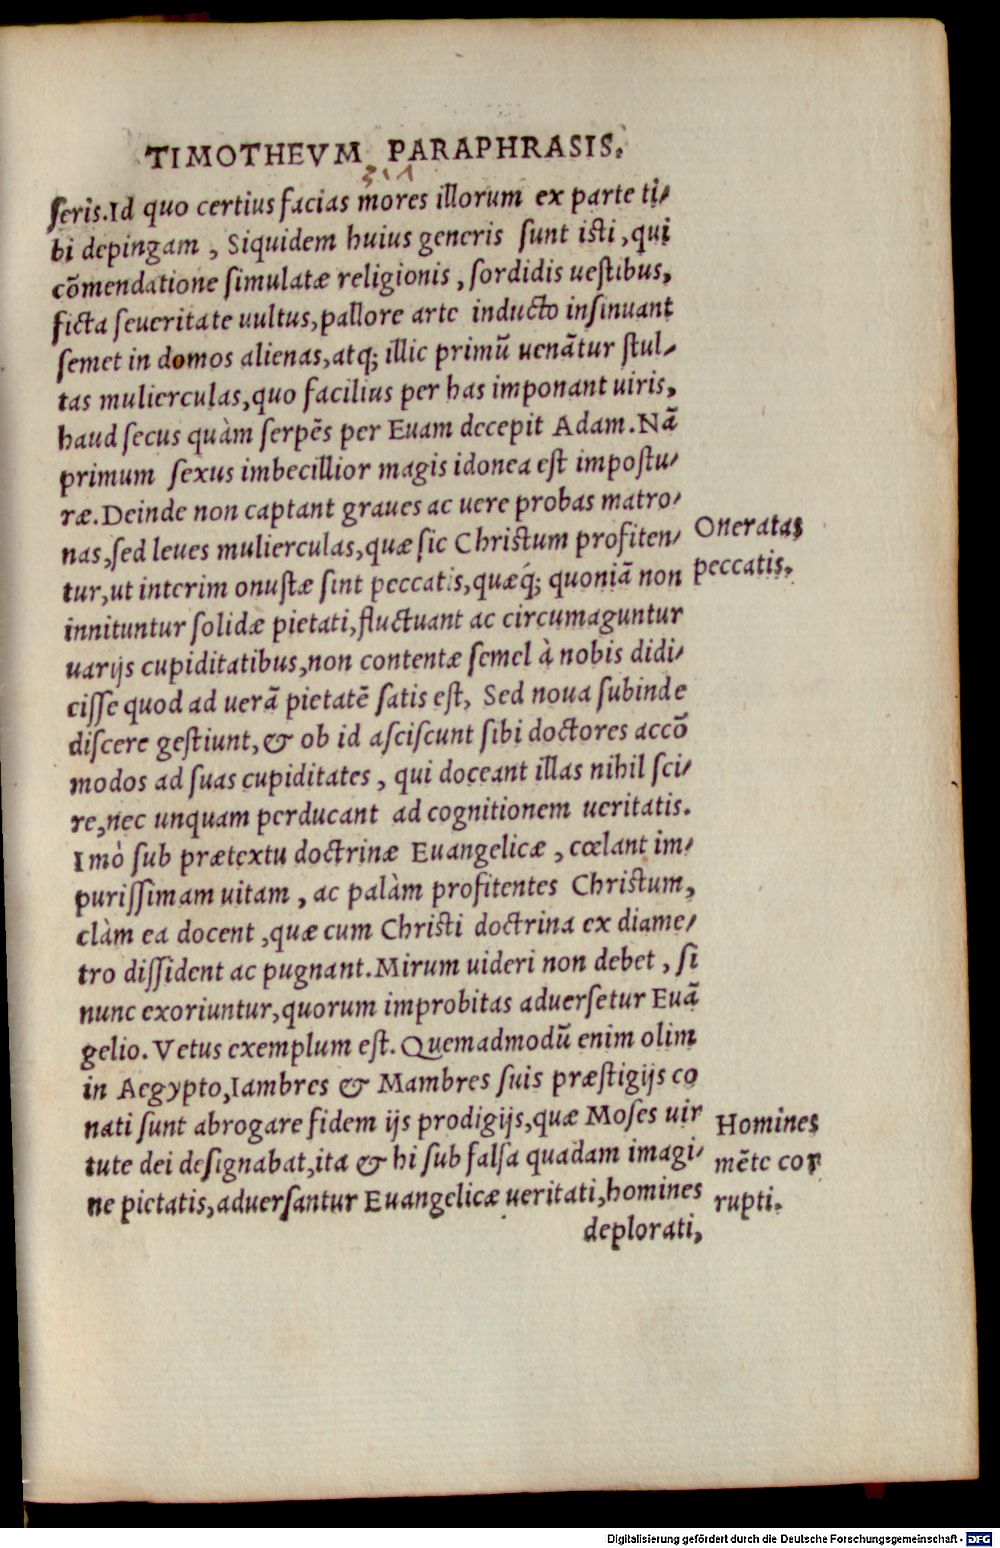 TIMOTHEVM PARAPHRASIS.
ſeris.Id quo certius facias mores illorum ex parte ti/
bi depingam, Siquidem huius generis ſunt iſti, qui
cõmendatione ſimulatæ religionis, ſordidis ueſtibus,
ficta ſeueritate uultus, pallore arte inducto inſinuant
ſemet in domos alienas, atq; illic primũ uenãtur ſtul/
tas mulierculas, quo facilius per has imponant uiris,
haud ſecus quàm ſerpẽs per Euam decepit Adam. Nã
primum ſexus imbecillior magis idonea eſt impoſtu/
ræ. Deinde non captant graues ac uere probas matro/
nas, ſed leues mulierculas, quæ ſic Chriſtum profiten/
Oneratas
tur, ut interim onuſtæ ſint peccatis, quæq́; quoniã non
peccatis.
innituntur ſolidæ pietati, fluctuant ac circumaguntur
uarijs cupiditatibus, non contentæ ſemel à nobis didi/
ciſſe quod ad uerã pietatẽ ſatis eſt, Sed noua ſubinde
diſcere geſtiunt, & ob id aſciſcunt ſibi doctores accõ
modos ad ſuas cupiditates, qui doceant illas nihil ſci/
re, nec unquam perducant ad cognitionem ueritatis.
Imò ſub prætextu doctrinæ Euangelicæ, cœlant im/
puriſſimam uitam, ac palàm profitentes Chriſtum,
clàm ea docent, quæ cum Chriſti doctrina ex diame/
tro diſſident ac pugnant. Mirum uideri non debet, ſi
nunc exoriuntur, quorum improbitas aduerſetur Euã
gelio. Vetus exemplum eſt. Quemadmodũ enim olim
in Aegypto, Iambres & Mambres ſuis præſtigijs co
nati ſunt abrogare fidem ijs prodigijs, quæ Moſes uir
Homines
tute dei deſignabat, ita & hi ſub falſa quadam imagi/
mẽte cor
ne pietatis, aduerſantur Euangelicæ ueritati, homines
rupti.
deplorati,
Digitalisierung gefördert durch die Deutsche Forschungsgemeinschaft - DFG